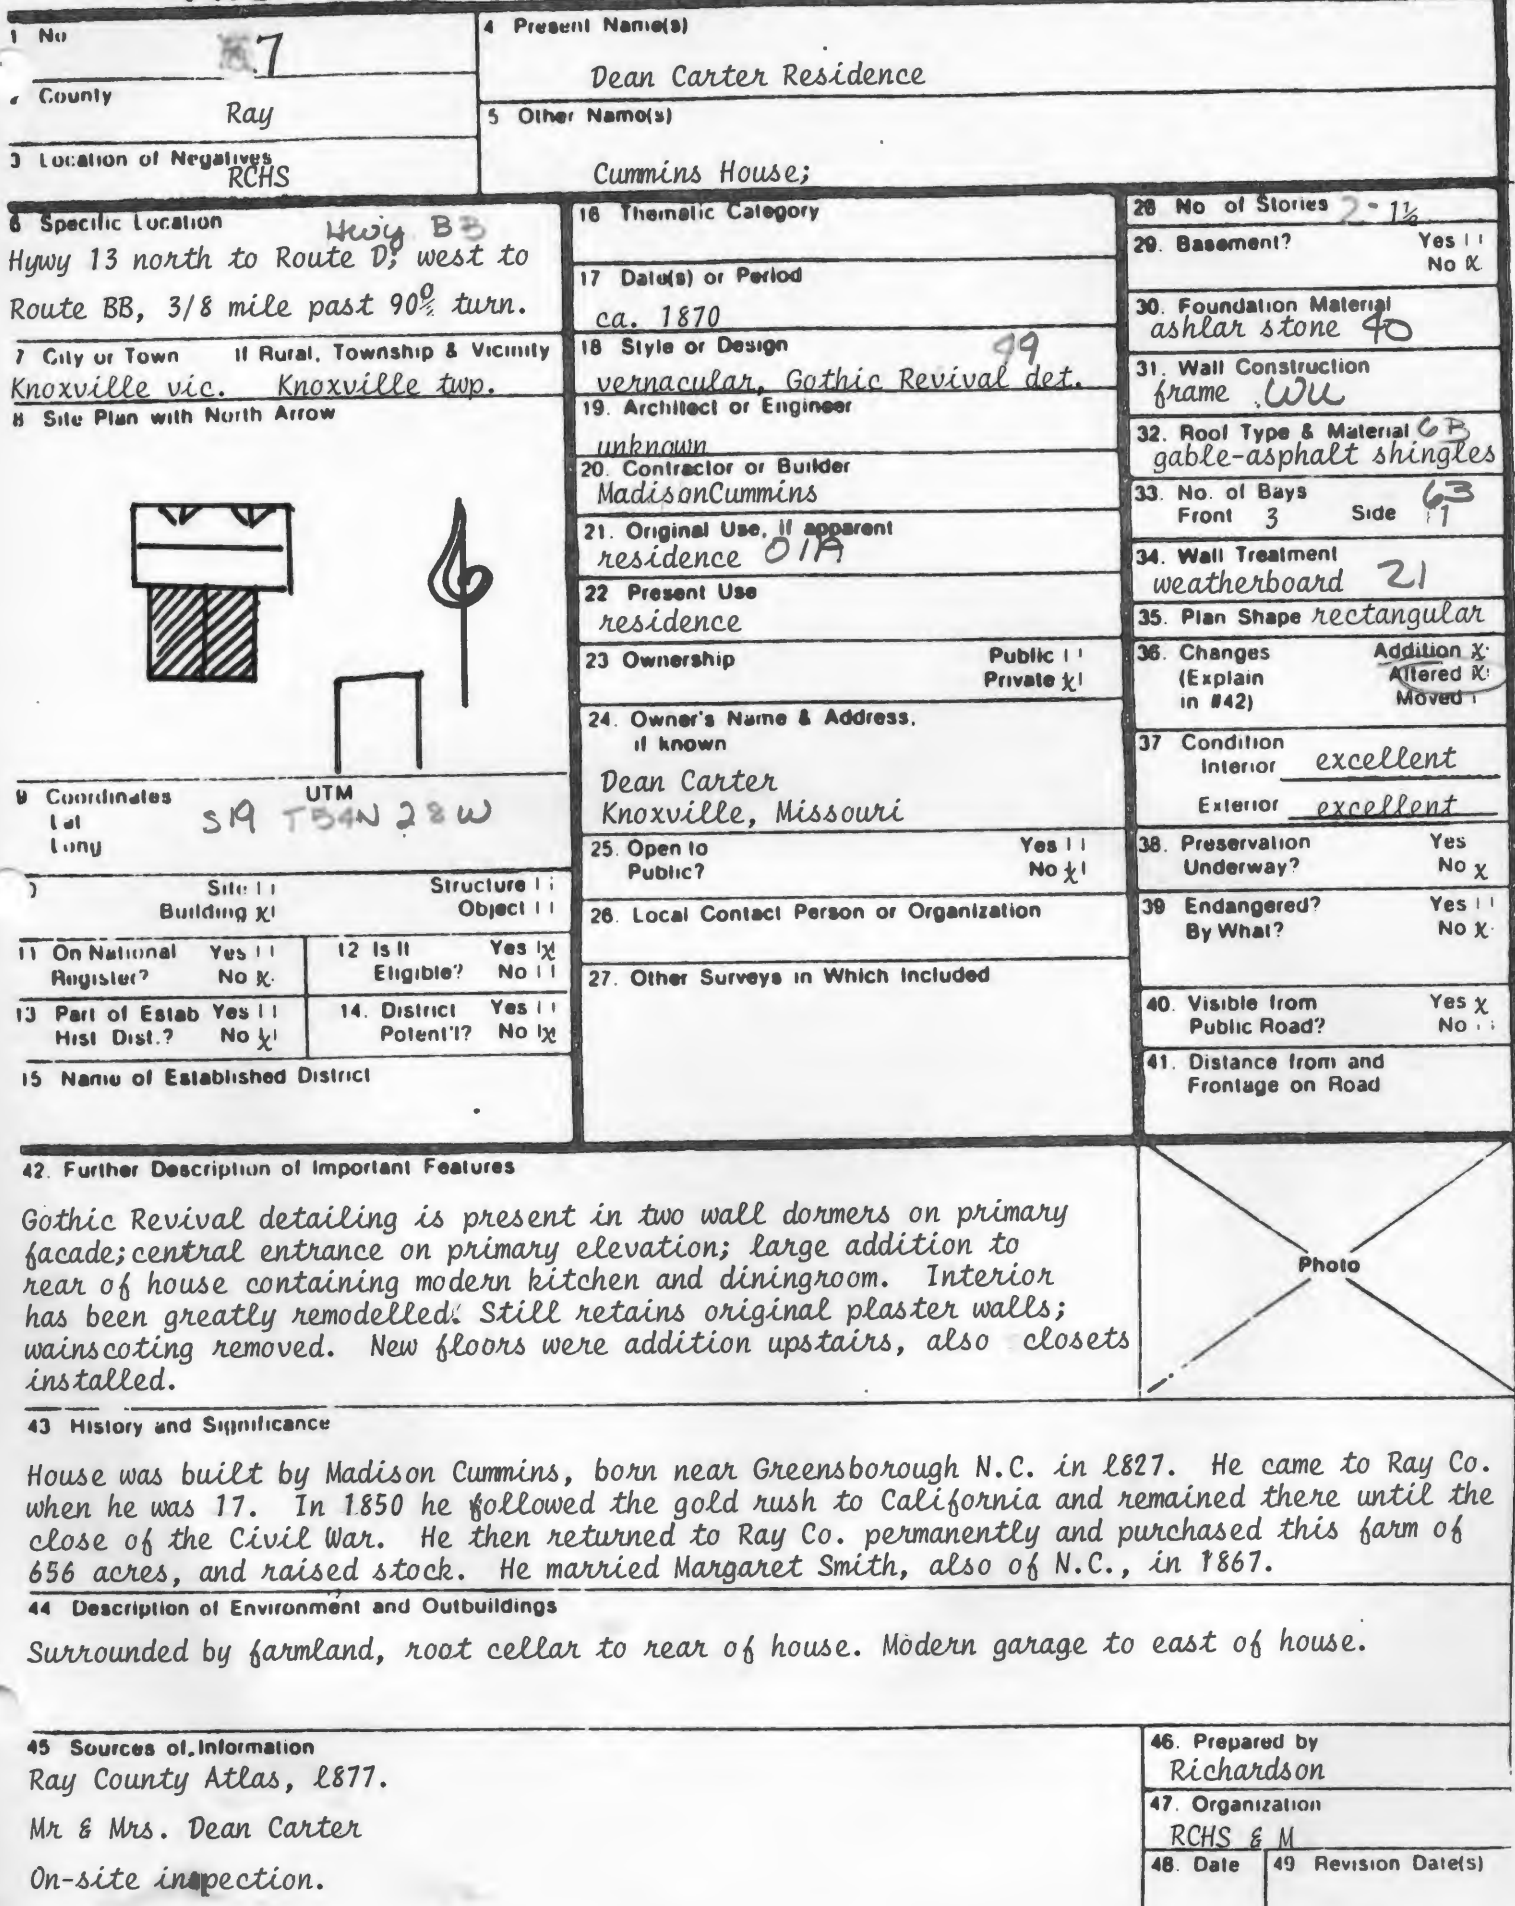 1 No
7
4 Present Name(s)
Dean Carter Residence
County
Ray
5 Other Name(s)
Cummins House;
3 Location of Negatives
RCHS
6 Specific Location
Hwy BB
Hywy 13 north to Route D; west to
Route BB, 3/8 mile past 90° turn.
7 City or Town If Rural, Township & Vicinity
Knoxville vic. Knoxville twp.
8 Site Plan with North Arrow
9 Coordinates UTM
Lat
Long
S19 T54N 28W
Site
Structure
Building x
Object
11 On National Register? Yes No x
12 Is It Eligible? Yes x No
13 Part of Estab Hist Dist.? Yes No x
14. District Potent'l? Yes No x
15 Name of Established District
16 Thematic Category
17 Date(s) or Period
ca. 1870
18 Style or Design 49
vernacular, Gothic Revival det.
19. Architect or Engineer
unknown
20. Contractor or Builder
MadisonCummins
21. Original Use, if apparent
residence 01A
22 Present Use
residence
23 Ownership Public
Private x
24. Owner's Name & Address,
if known
Dean Carter
Knoxville, Missouri
25. Open to Public? Yes No x
26. Local Contact Person or Organization
27. Other Surveys in Which Included
28 No of Stories 2 - 1½
29. Basement? Yes No x
30. Foundation Material
ashlar stone 40
31. Wall Construction
frame WU
32. Roof Type & Material GB
gable-asphalt shingles
33. No. of Bays
Front 3 Side 1
63
34. Wall Treatment
weatherboard 21
35. Plan Shape rectangular
36. Changes (Explain in #42)
Addition x
Altered x
Moved
37 Condition
Interior excellent
Exterior excellent
38. Preservation Underway? Yes No x
39 Endangered? By What? Yes No x
40. Visible from Public Road? Yes x No
41. Distance from and
Frontage on Road
42. Further Description of Important Features
Gothic Revival detailing is present in two wall dormers on primary
facade; central entrance on primary elevation; large addition to
rear of house containing modern kitchen and diningroom. Interior
has been greatly remodelled. Still retains original plaster walls;
wainscoting removed. New floors were addition upstairs, also closets
installed.
Photo
43 History and Significance
House was built by Madison Cummins, born near Greensborough N.C. in l827. He came to Ray Co.
when he was 17. In 1850 he followed the gold rush to California and remained there until the
close of the Civil War. He then returned to Ray Co. permanently and purchased this farm of
656 acres, and raised stock. He married Margaret Smith, also of N.C., in 1867.
44 Description of Environment and Outbuildings
Surrounded by farmland, root cellar to rear of house. Modern garage to east of house.
45 Sources of Information
Ray County Atlas, l877.
Mr & Mrs. Dean Carter
On-site inspection.
46. Prepared by
Richardson
47. Organization
RCHS & M
48. Date
49 Revision Date(s)